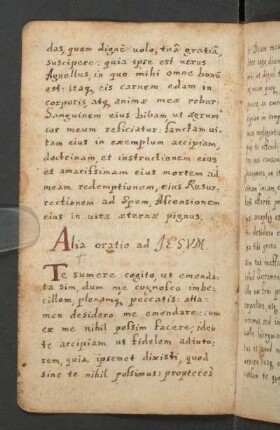 das, quem dignè uolo, tuâ gratiâ,
suscipere: quia ipse est uerus
Agnellus, in quo mihi omne bonũ
est: itaq; eis carnem edam in
corporis atq; animæ meæ robur.
Sanguinem eius bibam ut ægrum
cor meum reficiatur: sanctam ui-
tam eius in exemplum accipiam,
doctrinam et instructionem eius
et amarissimam eius mortem ad
meam redemptionem, eius Resur-
rectionem ad Spem, Ascensionem
eius in uitæ æternæ pignus.
Alia oratio ad JESVM.
Te sumere cogito, ut emenda-
ta sim, dum me cognosco imbe-
cillem, plenamq; peccatis: atta-
men desidero me emendare: cum
ex me nihil possim facere, ideo
te accipiam ut fidelem adiuto-
rem, quia ipsemet dixisti, quod
sine te nihil possimus: propterea